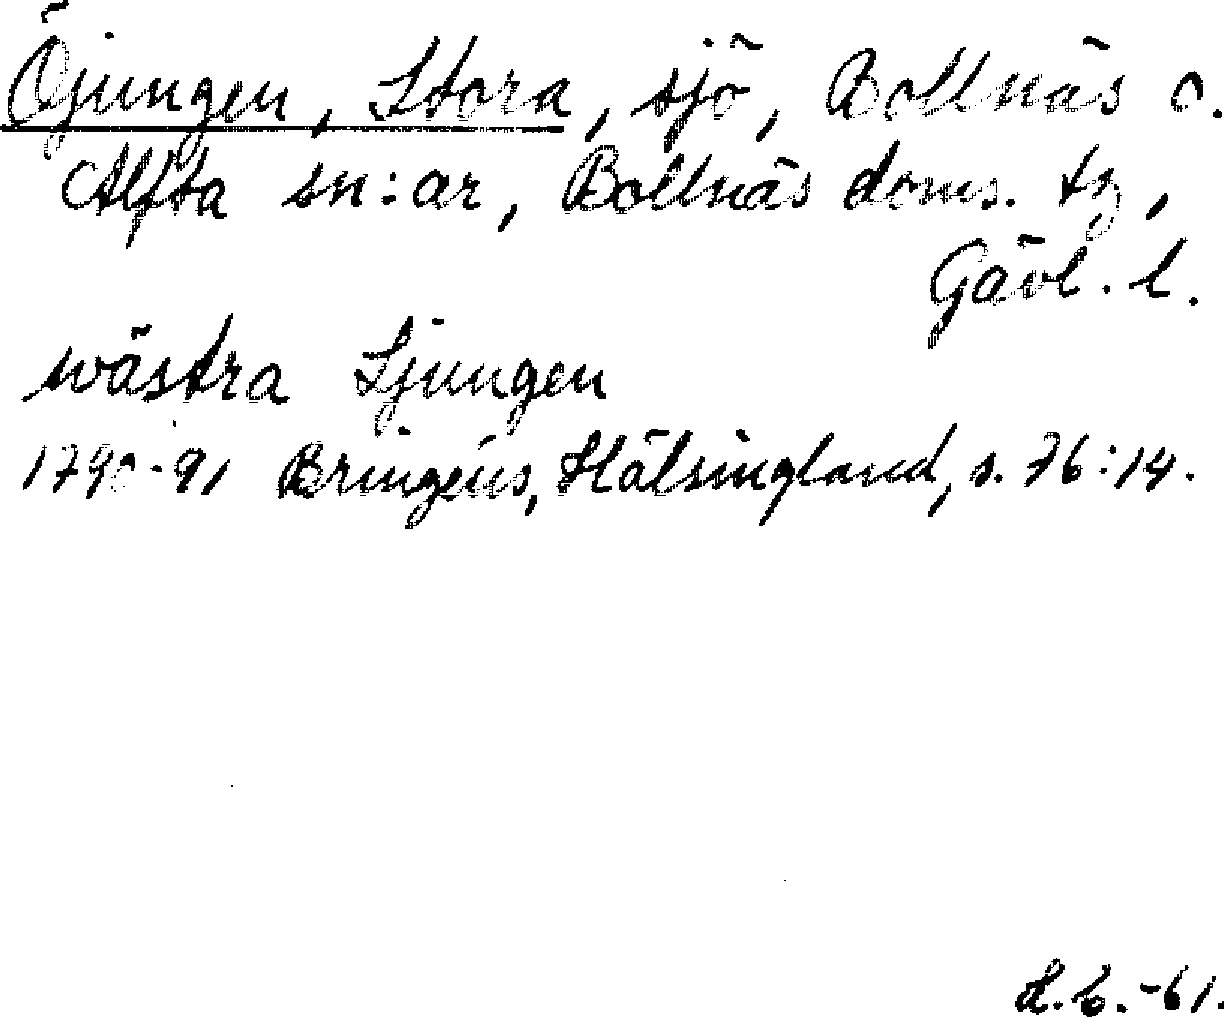 Öjungen, Stora, sjö, Bollnäs o.
Alfta sn:ar, Bollnäs doms. tg,
Gävl. l.
wästra Ljungen
1790-91 Bringéus, Hälsingland, s. 76:14.
L.C.-61.